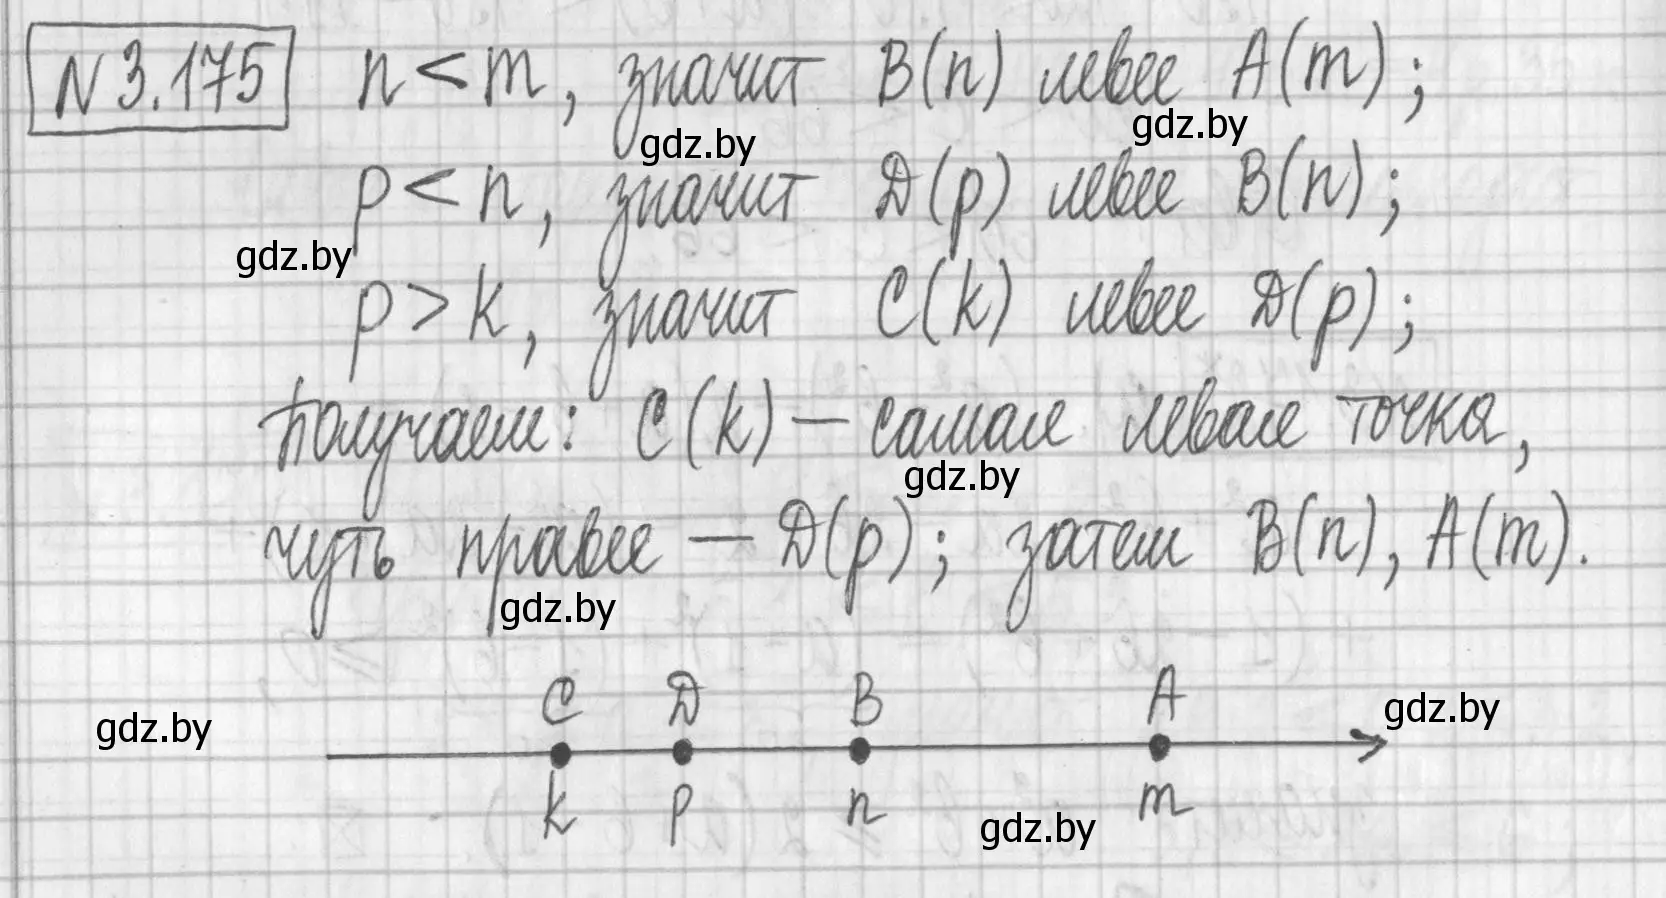 N 3.175 n < m, значит B(n) левее A(m);
gdz.by gdz.by
p < n, значит D(p) левее B(n);
gdz.by
p > k, значит C(k) левее D(p);
Получаем: C(k) — самая левая точка,
gdz.by
чуть правее — D(p); затем B(n), A(m).
gdz.by
C D B A
gdz.by gdz.by
k p n m
gdz.by